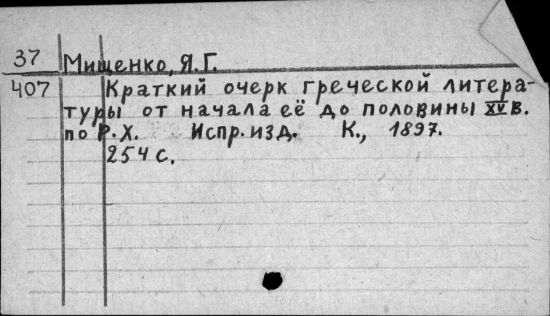 37 Мищенко, Я.Г.
407 Краткий очерк греческой литера-
туры от начала её до половины XV в.
по Р.Х. Испр. изд. К., 1897.
254 с.